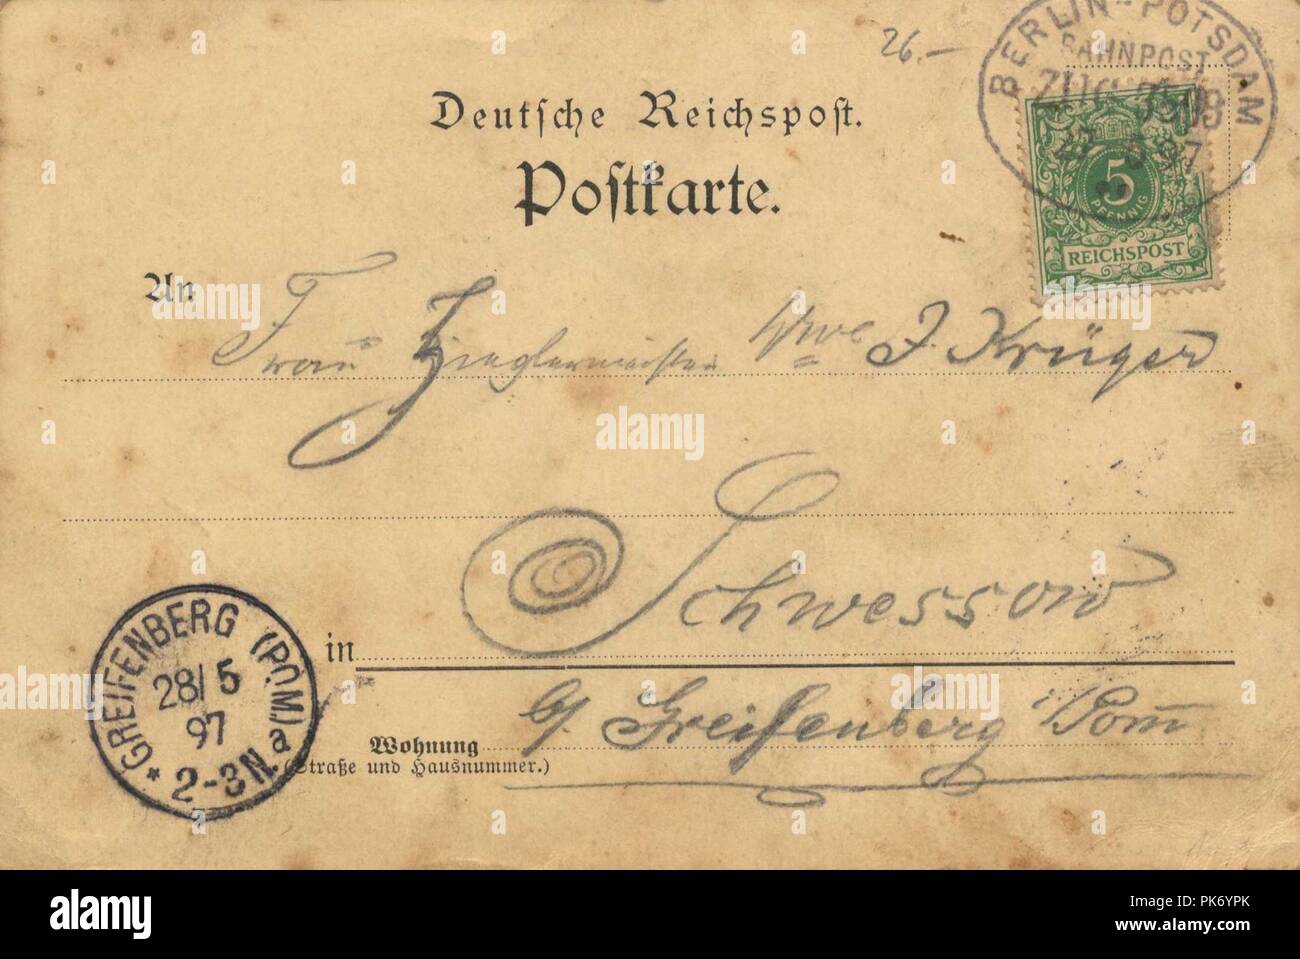 26.-
BERLIN-POTSDAM
BAHNPOST
ZUG
27 5 97
5
PFENNIG
REICHSPOST
Deutsche Reichspost.
Postkarte.
An
Frau Zieglermeister Wwe J. Krüger
in Schwessow
b/ Greifenberg i/Pom̄
Wohnung
(Straße und Hausnummer.)
GREIFENBERG (POM.) a
28/5
97
* 2-3N.
alamy
Image ID: PK6YPK
www.alamy.com